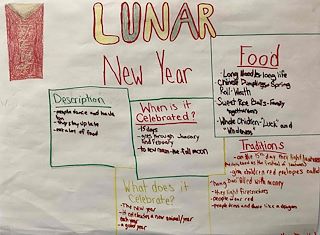 LUNAR
New Year
Food
- Long Noodles long life
Chinese Dumplings or Spring
Roll- Wealth
Sweet Rice Balls - Family
togetherness
Whole Chicken- "Luck" and
"Wholeness"
Description
- people dance and have
fun
- they stay up late
- eat a lot of food
When is it
Celebrated?
- 15 days
- goes through January
and February
- to new moon - the full moon
Traditions
- on the 15th day they light lanterns
- give children red envelopes called
filled with money
- they light firecrackers
- people wear red
- people dress and dance like a dragon
What does it
Celebrate?
- The new year
- it celebrates a new animal/year
each year
- a good year